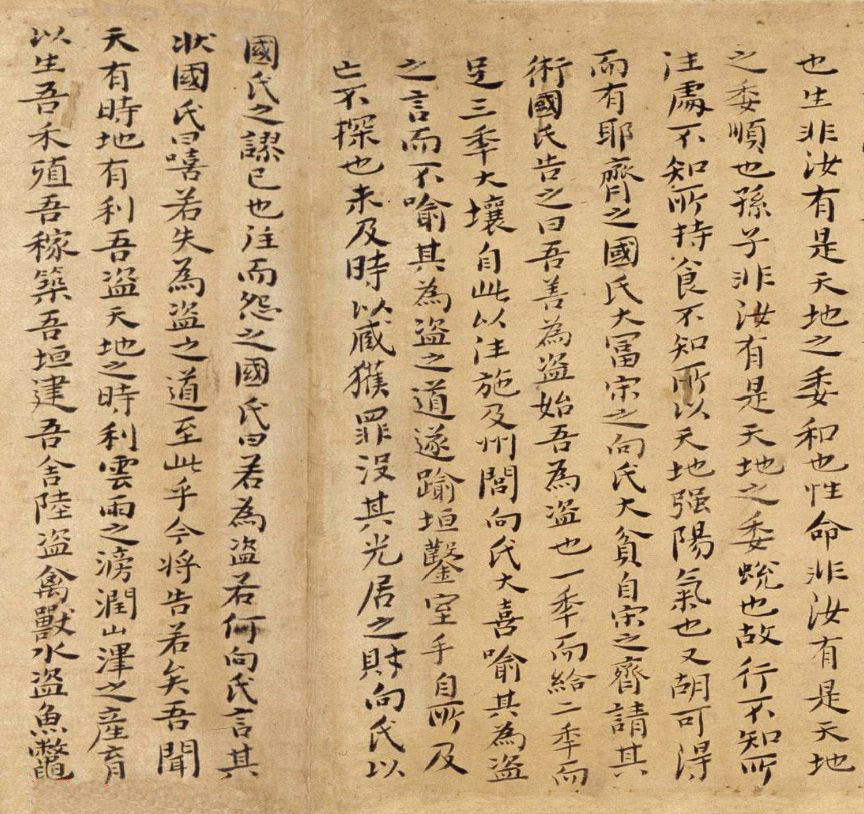 也生非汝有是天地之委和也性命非汝有是天地
之委順也孫子非汝有是天地之委蛻也故行不知所
往處不知所持食不知所以天地强陽氣也又胡可得
而有耶齊之國氏大冨宋之向氏大貧自宋之齊請其
術國氏告之曰吾善為盗始吾為盗也一秊而給二秊而
足三秊大壤自此以往施及州閭向氏大喜喻其為盗
之言而不喻其為盗之道遂踰垣鑿室手自所及
亡不探也未及時以臧獲罪没其先居之財向氏以
國氏之謬已也往而怨之國氏曰若為盗若何向氏言其
狀國氏曰嘻若失為盗之道至此乎今将告若矣吾聞
天有時地有利吾盗天地之時利雲雨之滂潤山澤之產育
以生吾禾殖吾稼築吾垣建吾舍陸盗禽獸水盗魚鼈